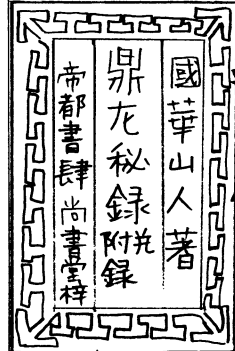 國華山人著
鼎左秘録附録
帝都書肆 尚書堂梓